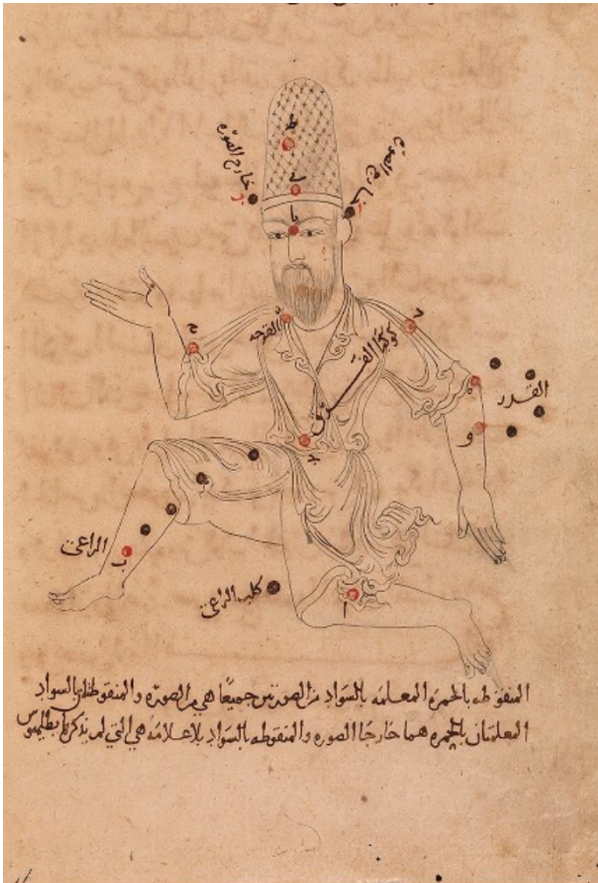 خارج الصوره
خارج الصوره
ط
ى
يا
ح
القرحه
د
كوكبا الفرق
ه
القدر
و
الراعى
ب
كلب الراعى
ا
المنقوطه بالحمره المعلمه بالسواد من الصورتين جميعًا هى من الصوره والمنقوطتان بالسواد
المعلمتان بالحمره هما خارجا الصوره والمنقوطه بالسواد بلا علامه هى التى لم يذكرها بطلميوس